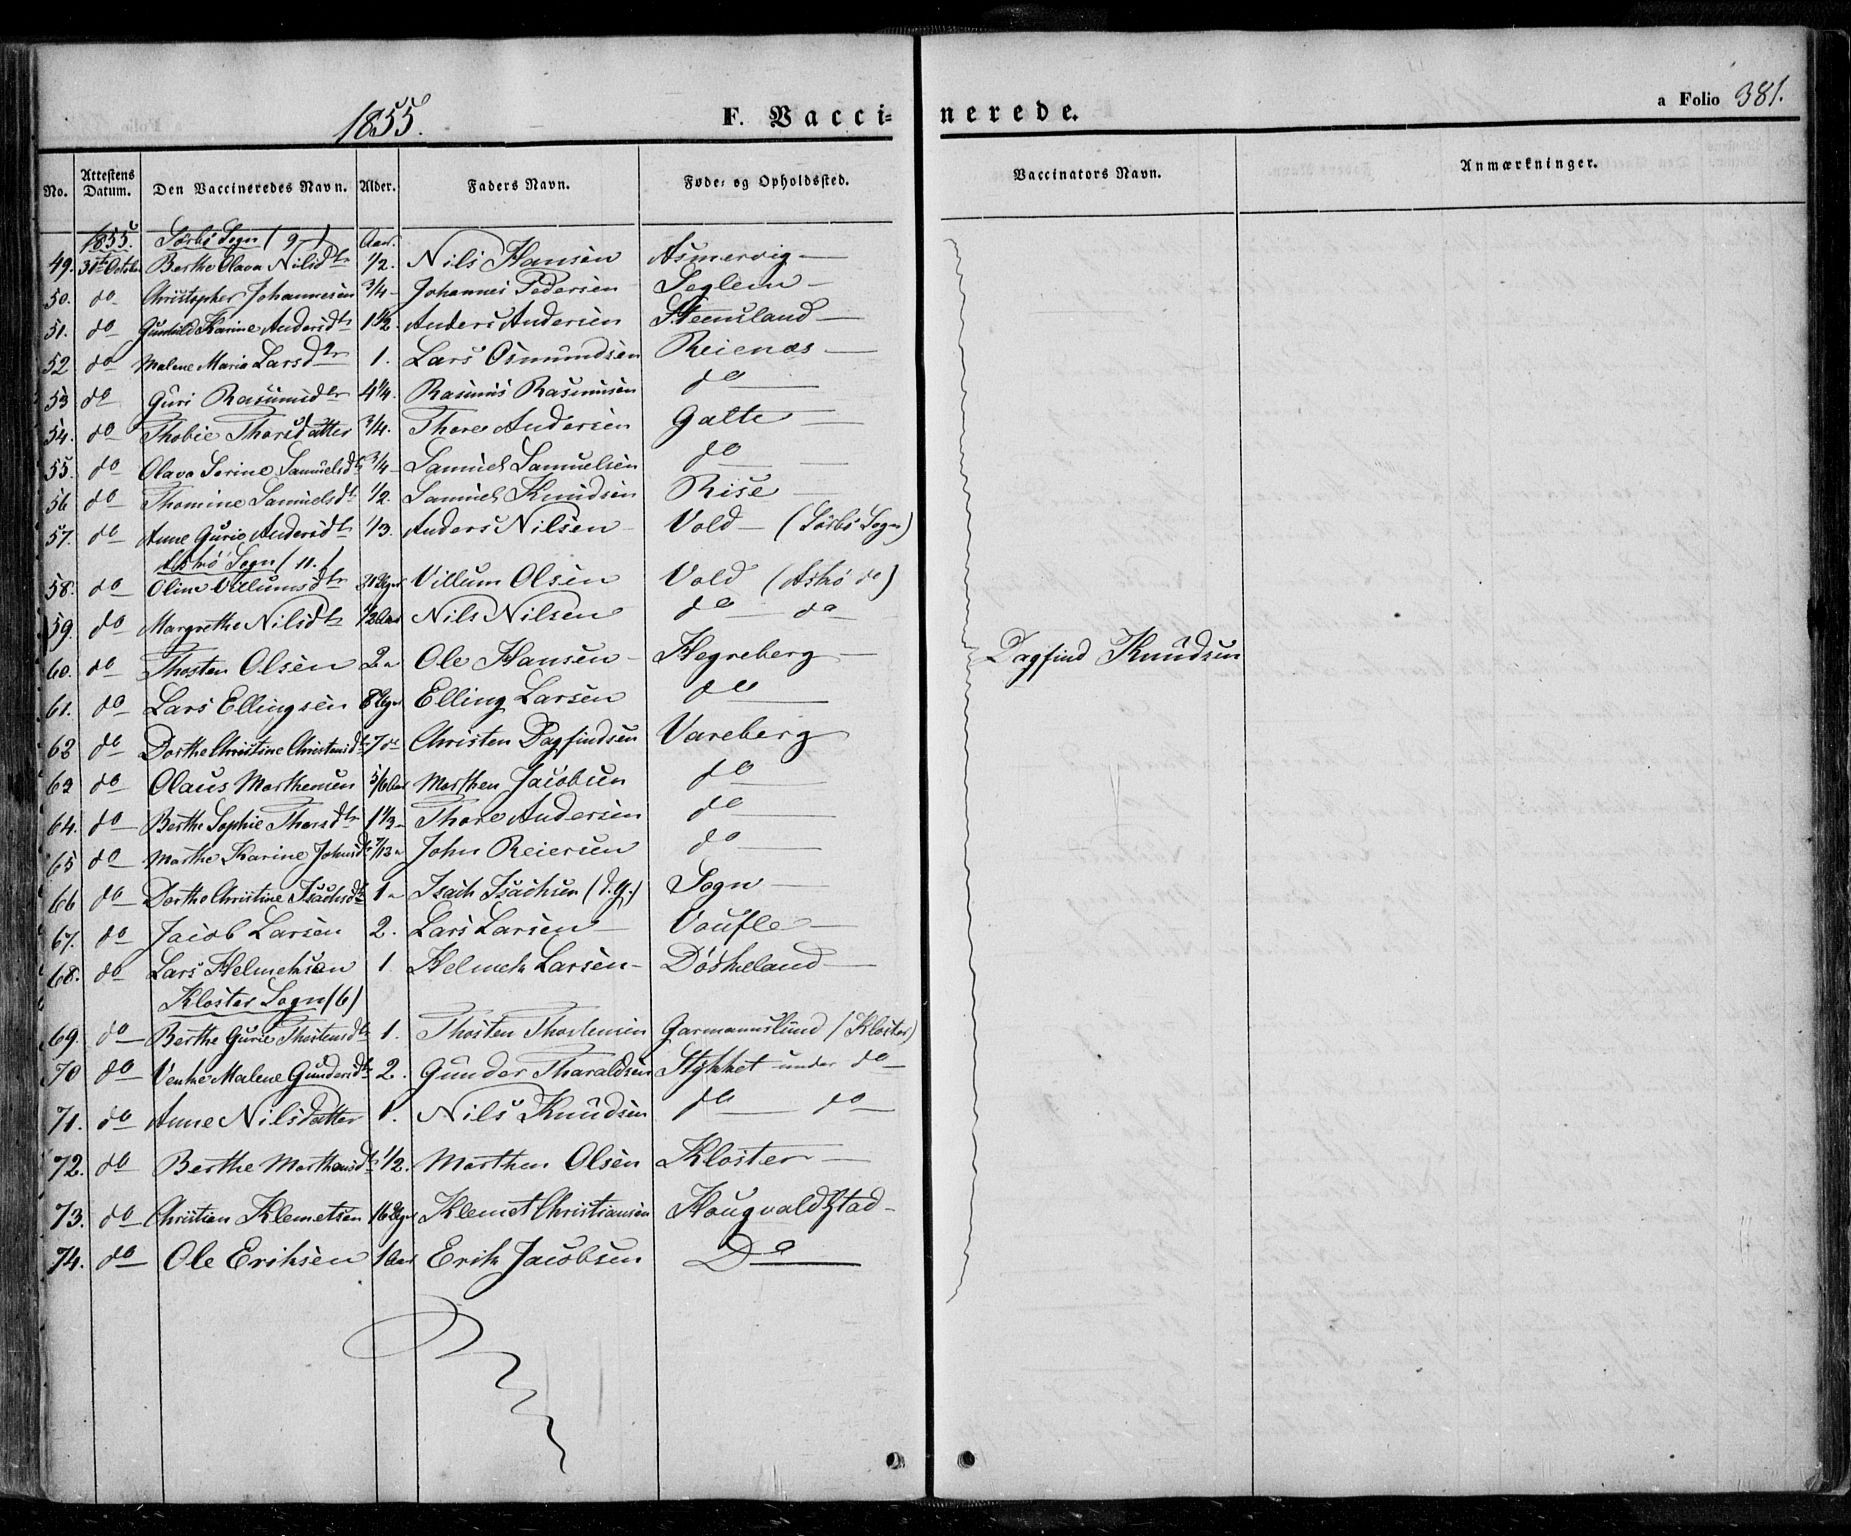 1855.
F. Vaccinerede.
a Folio 381.
No. Attestens Datum. Den Vaccineredes Navn. Alder. Faders Navn. Føde- og Opholdssted. Vaccinators Navn. Anmærkninger.
1855. Sørbø Sogn (9) Aar.
49. 31te Octobr Berthe Olava Nilsdtr 1/2. Nils Hansen Asmervig
50. do Christopher Johannesen 3/4 Johannes Pedersen Seglem
51. do Gunhild Karine Andersdtr 1 1/2. Anders Andersen Steensland
52 do Malene Maria Larsdtr 1. Lars Osmundsen Reienæs
53 do Guri Rasmusdtr 4 1/4. Rasmus Rasmusen do
54. do Thobie Thorsdatter 3/4. Thore Andersen Galte
55. do Olava Serine Samuelsdtr 3/4 Samuel Samuelsen do
56 do Thomine Samuelsdtr 1/2. Samuel Knudsen Rise
57. do Anne Gurie Andersdtr 1/3. Anders Nilsen Vold (Sørbø Sogn)
Askø Sogn (11.)
58. do Oline Villumsdtr Villum Olsen Vold (Askø do)
59. do Margrethe Nilsdtr 1/2 Aar Nils Nilsen do do
60. do Thosten Olsen 2 " Ole Hansen Hegreberg
61. do Lars Ellingsen 8 Uger Elling Larsen do
62 do Dorthe Christine Christensdtr 7 do Christen Dagfindsen Vareberg
63 do Olaus Morthensen 5/6 Aar Morthen Jacobsen do
64. do Berthe Sophie Thorsdtr 1 1/2 Thore Andersen do
65 do Marthe Karine Johnsdtr John Reiersen do
66 do Dorthe Christine Isachsdtr 1 " Isach Isachsen (d.y.) Sogn
67. do Jacob Larsen 2. Lars Larsen Voufle
68. do Lars Helmeksen 1. Helmek Larsen Døskeland
Kloster Sogn (6)
69. do Berthe Gurie Thostensdtr 1. Thosten Thostensen Garmannslund (Kloster)
70 do Venke Malene Gundersdtr 2. Gunder Tharaldsen Stykket under do
71. do Anne Nilsdatter 1. Nils Knudsen do do
72. do Berthe Morthensdtr 1/2. Morthen Olsen Kloster
73. do Christian Klemetsen 16 Uger Klemet Christiansen Hougvaldstad
74. do Ole Eriksen 1 Aar Erik Jacobsen Do
Dagfind Knudsen